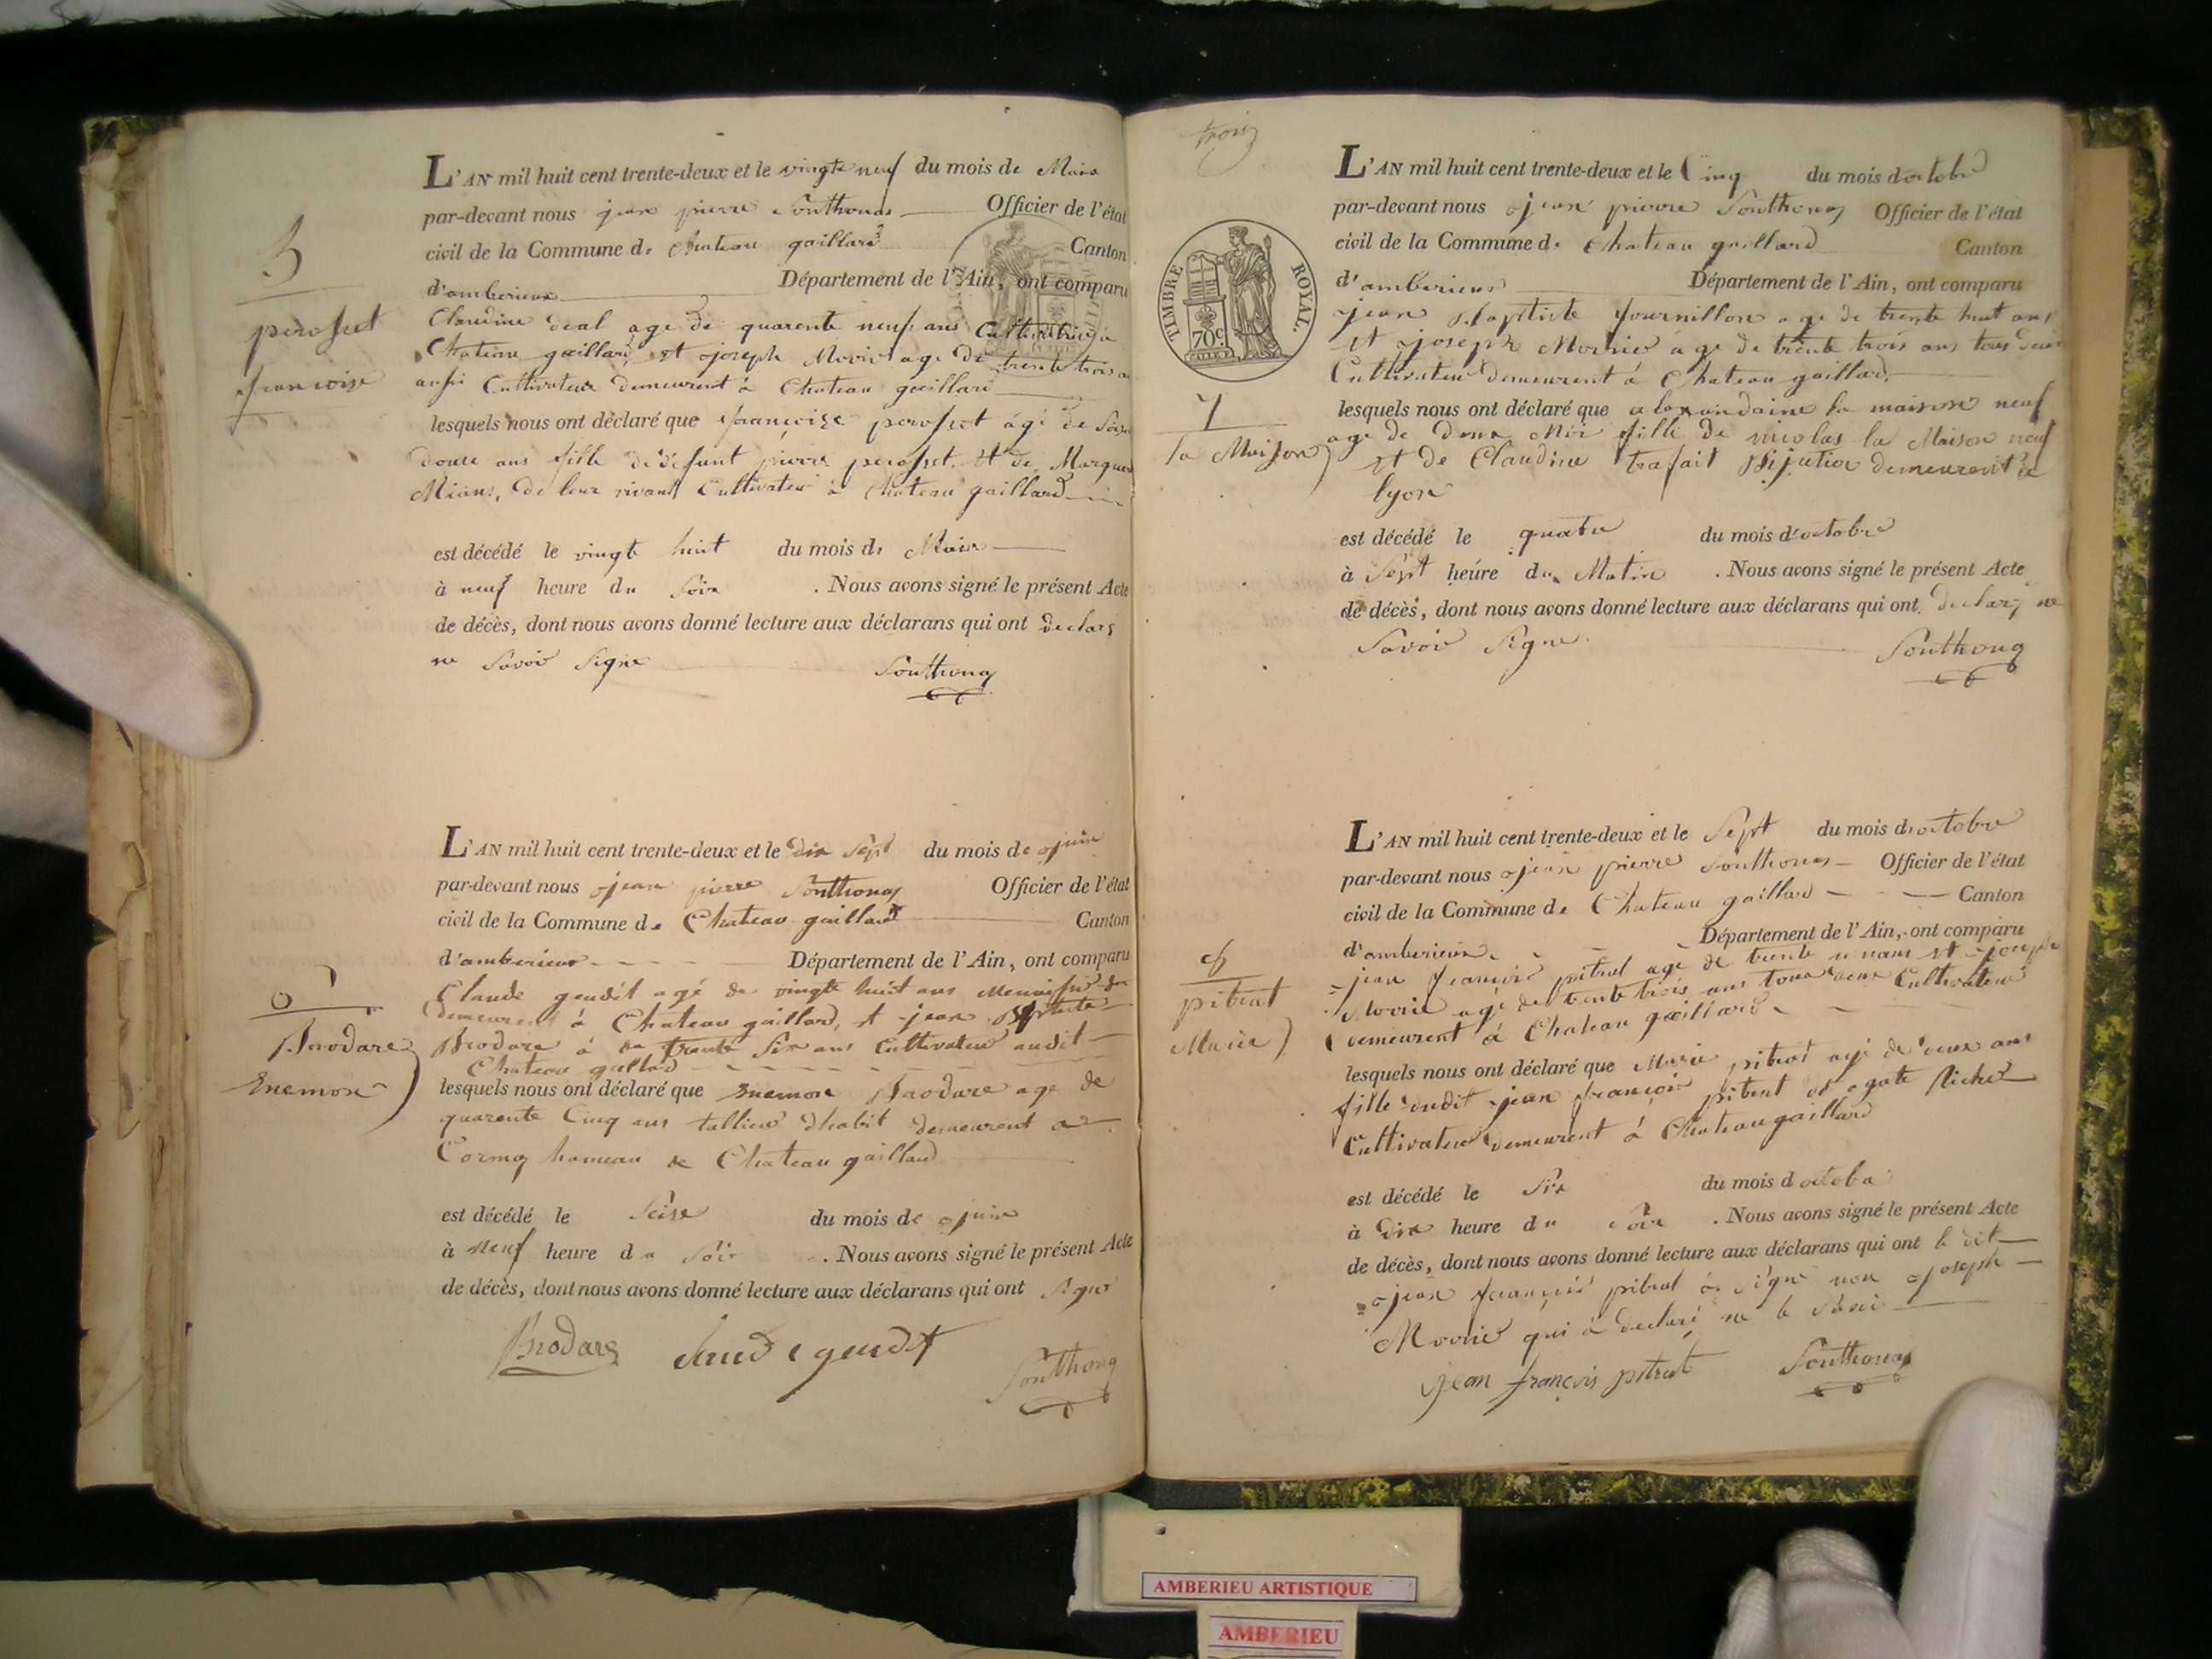 5
perosset
francoise
L'AN mil huit cent trente-deux et le vingte neuf du mois de Mars
par-devant nous jean pierre Southonas Officier de l'état
civil de la Commune de Chateau gaillard Canton
d'amberieux Département de l'Ain, ont comparu
Claudine deal age de quarente neuf ans Cultivatrice a
Chateau gaillard, et joseph Movie age de trente trois a
aussi Cultivateur demeurent à Chateau gaillard
lesquels nous ont déclaré que françoise perosset âgé de
douze ans fille de défunt pierre perosset et de
de leur vivant Cultivateur à Chateau gaillard
est décédé le vingte huit du mois de Mars
à neuf heure du Soir . Nous avons signé le présent Acte
de décès, dont nous avons donné lecture aux déclarans qui ont declare
ne Savoir Signe
Southonas
6
Brodare
Enemon
L'AN mil huit cent trente-deux et le dix Sept du mois de juin
par-devant nous jean pierre Southonas Officier de l'état
civil de la Commune de Chateau gaillard Canton
d'amberieux Département de l'Ain, ont comparu
Claude gendet agé de vingte huit ans
demeurent à Chateau gaillard, et jean
Brodare a de trente Six ans Cultivateur audit
Chateau gallard
lesquels nous ont déclaré que Enemon Brodare age de
quarente Cinq ans tallieur dhabit demeurent a
Cormoz hameau de Chateau gaillard
est décédé le Seise du mois de juin
à Neuf heure du Soir . Nous avons signé le présent Acte
de décès, dont nous avons donné lecture aux déclarans qui ont Signe
Brodare Claude gendet Southonas
trois
TIMBRE ROYAL.
70c
7
la Maison
L'AN mil huit cent trente-deux et le Cinq du mois doctobre
par-devant nous jean pierre Southonas Officier de l'état
civil de la Commune de Chateau gaillard Canton
d'amberieux Département de l'Ain, ont comparu
jean Baptiste fournillon age de trente huit ans
et joseph Movie age de trente trois ans tous deux
Cultivateur demeurent à Chateau gaillard
lesquels nous ont déclaré que la maison neuf
age de deux Moi fille de nicolas la Maison neuf
et de Claudine demeurent a
lyon
est décédé le quatre du mois d'octobre
à Sept heure du Matin . Nous avons signé le présent Acte
de décès, dont nous avons donné lecture aux déclarans qui ont declare ne
Savoir Signe
Southonas
8
pitrat
Marie
L'AN mil huit cent trente-deux et le Sept du mois doctobre
par-devant nous jean pierre Southonas Officier de l'état
civil de la Commune de Chateau gaillard Canton
d'amberieux Département de l'Ain, ont comparu
jean François pitrat age de trente un ans et joseph
Movie agé de trente trois ans tous deux Cultivateur
demeurent à Chateau gaillard
lesquels nous ont déclaré que Marie pitrat agé de deux ans
fille dudit jean françois pitrat et agate
Cultivateur demeurent à Chateau gaillard
est décédé le Six du mois doctobre
à Dix heure du Soir . Nous avons signé le présent Acte
de décès, dont nous avons donné lecture aux déclarans qui ont le dit
jean françois pitrat à Signe non joseph
Movie qui à declaré ne le Savoir
jean françois pitrat Southonas
AMBERIEU ARTISTIQUE
AMBERIEU